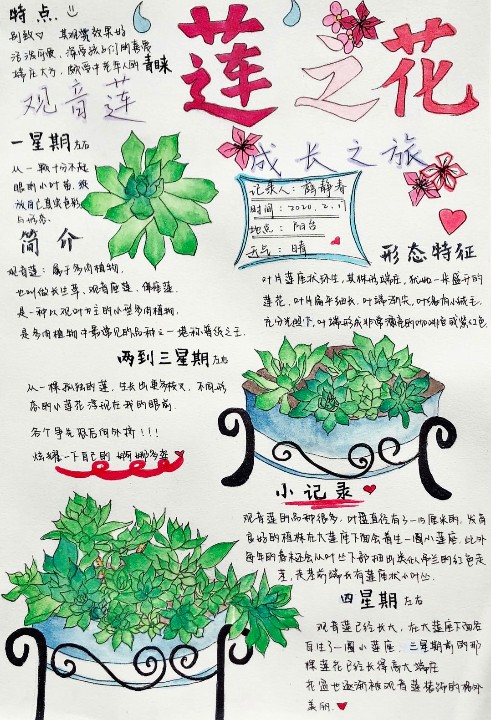 特点
别致 其观赏效果好
活泼可爱，深受孩子们的喜爱
端庄大方，颇受中老年人的青睐
莲之花
观音莲
成长之旅
一星期左右
从一颗十分不起
眼的小叶苗，绽
放自己真实色彩
与形态。
记录人：薛静春
时间：2020.2.
地点：阳台
天气：晴
简介
观音莲：属于多肉植物，
也叫做长生草，观音座莲，佛座莲
是一种以观叶为主的小型多肉植物，
是多肉植物中最常见的品种之一
形态特征
叶片莲座状环生，其株形端庄，犹如一朵盛开的
莲花，叶片扁平细长，叶端渐尖，叶缘有小绒毛，
充分光照下，叶端形成非常漂亮的咖啡色或紫红色
两到三星期左右
从一棵孤独的莲，生长出更多枝叉，不同形
态的小莲花浮现在我的眼前，
各个争先恐后向外挤！！！
炫耀一下自己的婀娜多姿
小记录
观音莲的品种很多，叶盘直径有3—15厘米的，发育
良好的植株在大莲座下面会着生一圈小莲座，此外
每年的春末还会从叶丛下部抽出类似吊兰的红色走
茎，走茎前端长有莲座状小叶丛。
四星期左右
观音莲已经长大，在大莲座下面容
着生了一圈小莲座，三星期前的那
棵莲花已经长得高大端庄
花盆也逐渐被观音莲装饰的格外
美丽。